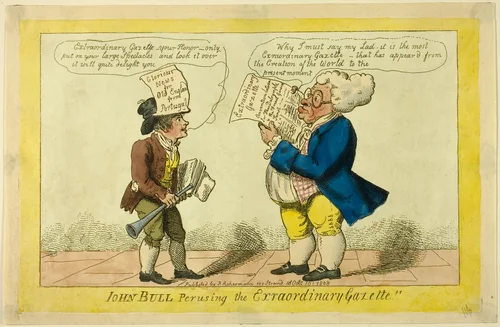 Extraordinary Gazette your Honor—only
put on your large Spectacles and look it over
it will quite delight you
Why I must say my Lad, it is the most
Exraordinary Gazette that has appear'd from
the Creation of the World to the
present moment
Glorious
News
for
Old England
from
Portugal
Extraordinary
Gazette
JOHN BULL Perusing the Exraordinary Gazette"